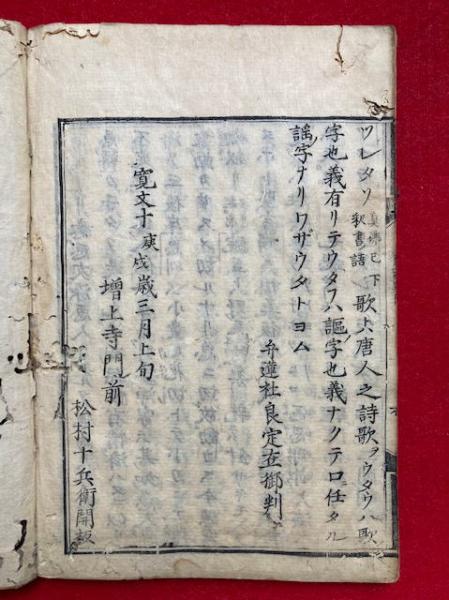 ツレタリ 真佛已下釈書語 歌ト云唐人之詩歌ヲウタウハ歌
字也義有リテウタフハ謳字也義ナクテロ任タル
謡字ナリワザウタトヨム
弁蓮社良定在御判
寛文十庚戌歳三月上旬
増上寺門前
松村十兵衛開板